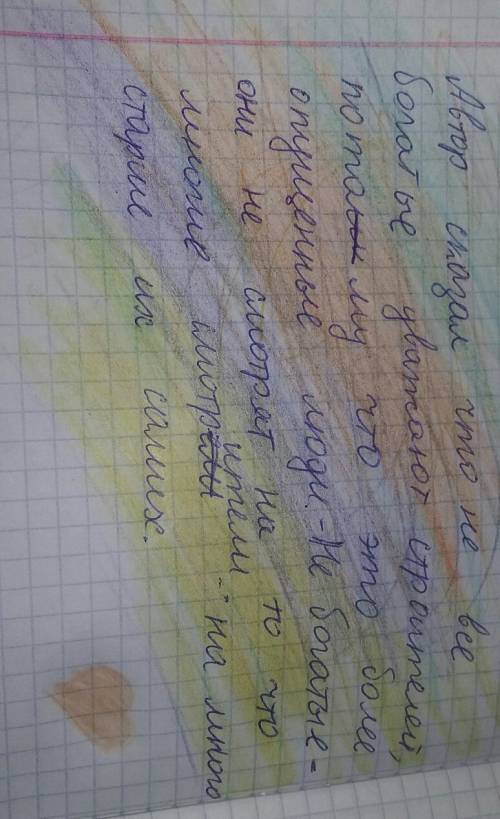 Автор сказал что не все
богатые уважают строителей,
потому что это более
опущенные люди. - Не богатые -
они не смотрят на то что
многие
ители на много
старше их самих.